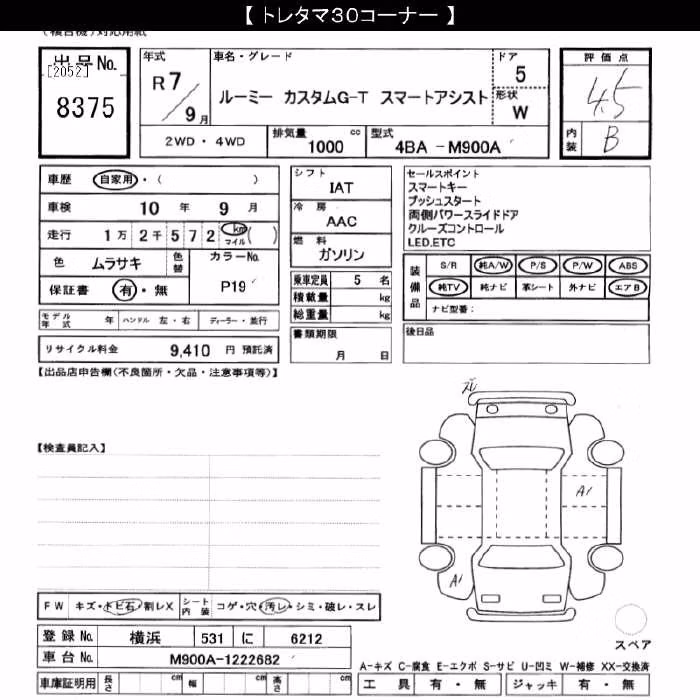 【 トレタマ30コーナー 】
(複合機)対応用紙
出品No.
[2052]
8375
年式
R7/9月
車名・グレード
ルーミー カスタムG-T スマートアシスト
ドア
5
形状
W
評価点
4.5
内装
B
2WD・4WD
排気量
1000 cc
型式
4BA-M900A
車歴 自家用・( )
車検 10 年 9 月
走行 1万2千572 km マイル ( )
色 ムラサキ
色替
カラーNo.
P19
保証書 有・無
シフト
IAT
冷房
AAC
燃料
ガソリン
乗車定員 5 名
積載量 kg
総重量 kg
セールスポイント
スマートキー
プッシュスタート
両側パワースライドドア
クルーズコントロール
LED,ETC
装備品
S/R 純A/W P/S P/W ABS
純TV 純ナビ 革シート 外ナビ エアB
ナビ型番:
モデル年式 年 ハンドル 左・右 ディーラー・並行
リサイクル料金 9,410 円 預託済
書類期限
月 日
後日品
【出品店申告欄(不良箇所・欠品・注意事項等)】
ズレ
【検査員記入】
A1
A1
FW キズ・トビ石・割レX
シート内装 コゲ・穴・汚レ・シミ・破レ・スレ
登録No. 横浜 531 に 6212
車台No. M900A-1222682
スペア
A-キズ C-腐食 E-エクボ S-サビ U-凹ミ W-補修 XX-交換済
車庫証明用 長さ cm 幅 cm 高さ cm
工具 有・無 ジャッキ 有・無